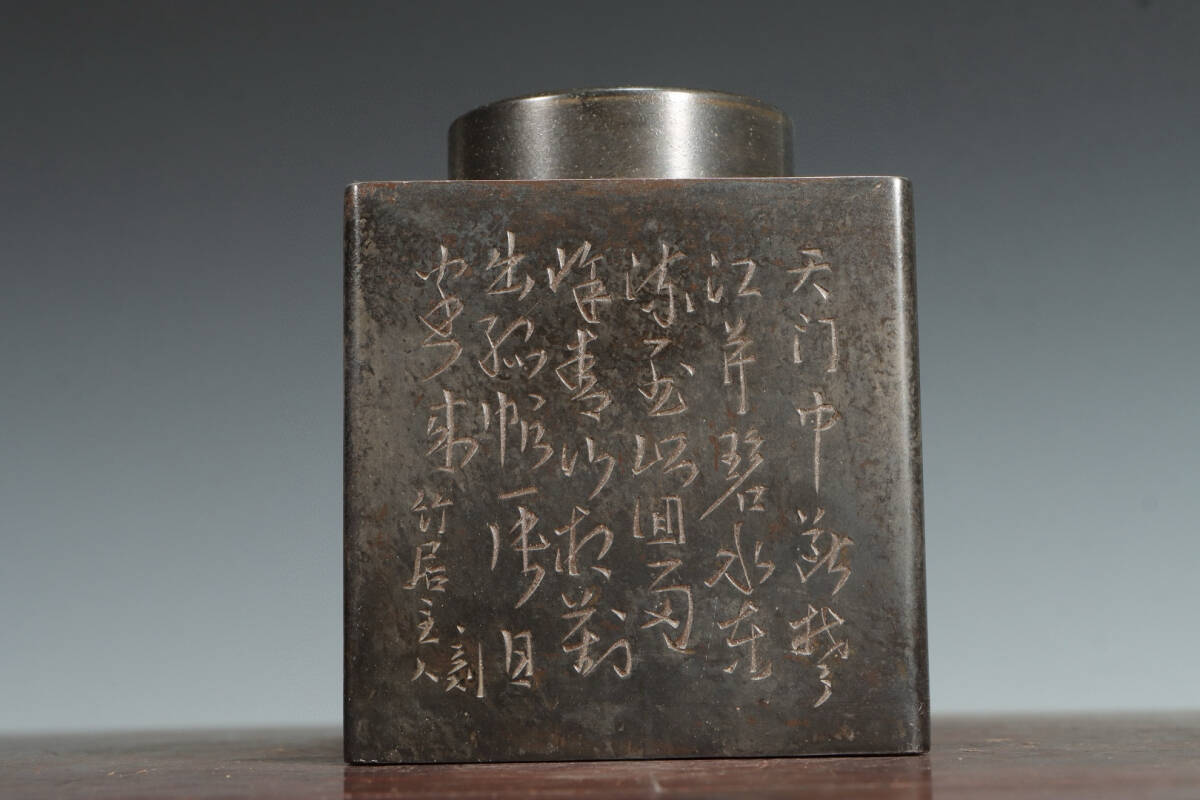 天门中断楚
江开碧水东
流至此回两
岸青山相对
出孤帆一片日
边来
竹居主人刻